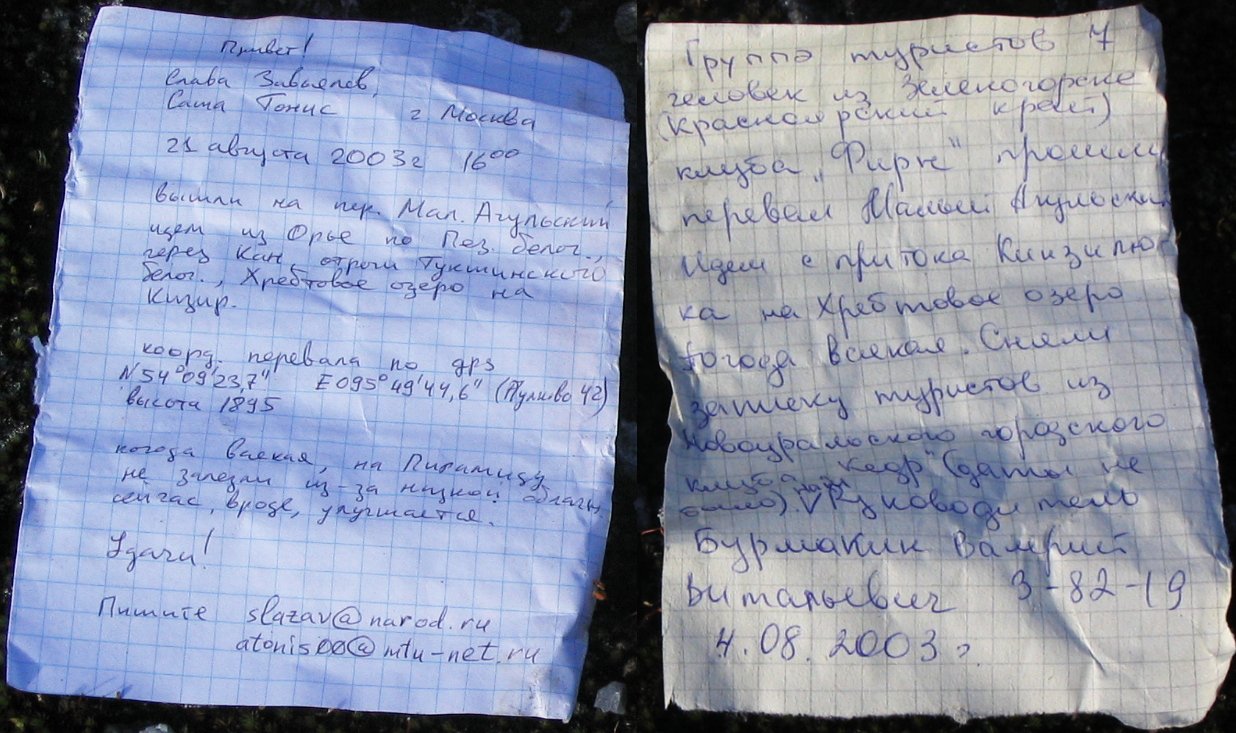 Привет!
Слава Завьялов,
Саша Тонис г Москва
21 августа 2003г 16⁰⁰
вышли на пер. Мал. Агульский
идем из Орье по Пез. белог.,
через Кан, отроги Тукшинского
белог., Хребтовое озеро на
Кизир.
коорд. перевала по gps
N54°09'23,7" E095°49'44,6" (Пулково 42)
высота 1895
погода всякая, на Пирамиду
не залезли из-за низкой облачн,
сейчас, вроде, улучшается.
Удачи!
Пишите slazav@narod.ru
atonis00@mtu-net.ru
Группа туристов 7
человек из Зеленогорска
(Красноярский край)
клуба „Фирн" прошли
перевал Малый Агульский
Идем с притока Кинзилю-
ка на Хребтовое озеро
Погода всякая. Сняли
записку туристов из
Новоуральского городского
клуба „Кедр" (даты не
было) Руководитель
Бурмакин Валерий
Витальевич 3-82-19
4.08.2003г.